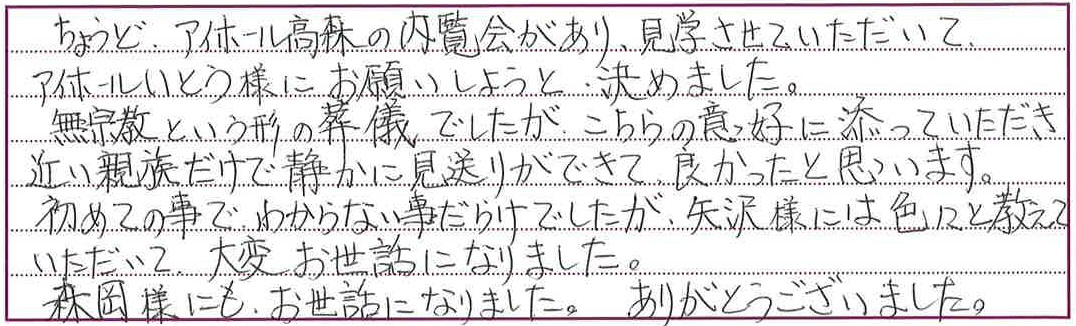 ちょうど、アイホール高森の内覧会があり、見学させていただいて、
アイホールいとう様にお願いしようと、決めました。
無宗教という形の葬儀でしたが、こちらの意向に添っていただき
近い親族だけで静かに見送りができて、良かったと思います。
初めての事で、わからない事だらけでしたが、矢沢様には色々と教えて
いただいて、大変お世話になりました。
森岡様にも、お世話になりました。 ありがとうございました。